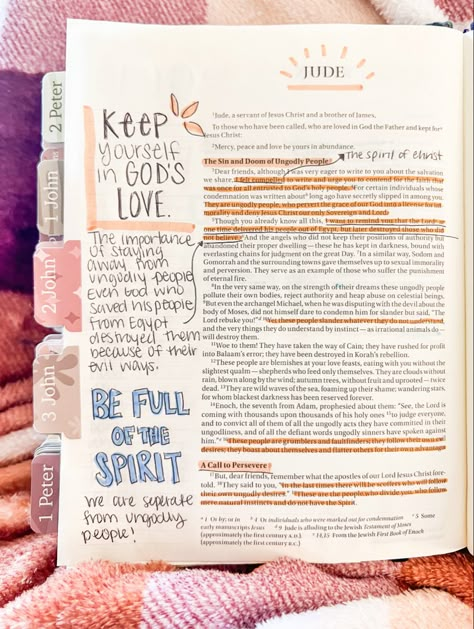 2 Peter
1 John
2 John
3 John
1 Peter
JUDE
KEEP
yourself
in GOD'S
LOVE.
The importance
of staying
away from
ungodly people
even GOD who
saved his people
from Egypt
destroyed them
because of their
evil ways.
BE FULL
OF THE
SPIRIT
we are seperate
from ungodly
people!
¹Jude, a servant of Jesus Christ and a brother of James,
To those who have been called, who are loved in God the Father and kept for
Jesus Christ:
²Mercy, peace and love be yours in abundance.
The Sin and Doom of Ungodly People
The spirit of christ
³Dear friends, although I was very eager to write to you about the salvation
we share, I felt compelled to write and urge you to contend for the faith that
was once for all entrusted to God's holy people. ⁴For certain individuals whose
condemnation was written about long ago have secretly slipped in among you.
They are ungodly people, who pervert the grace of our God into a license for im
morality and deny Jesus Christ our only Sovereign and Lord.
⁵Though you already know all this, I want to remind you that the Lord at
one time delivered his people out of Egypt, but later destroyed those who did
not believe. ⁶And the angels who did not keep their positions of authority but
abandoned their proper dwelling — these he has kept in darkness, bound with
everlasting chains for judgment on the great Day. ⁷In a similar way, Sodom and
Gomorrah and the surrounding towns gave themselves up to sexual immorality
and perversion. They serve as an example of those who suffer the punishment
of eternal fire.
⁸In the very same way, on the strength of their dreams these ungodly people
pollute their own bodies, reject authority and heap abuse on celestial beings.
⁹But even the archangel Michael, when he was disputing with the devil about the
body of Moses, did not himself dare to condemn him for slander but said, "The
Lord rebuke you!" ¹⁰Yet these people slander whatever they do not understand,
and the very things they do understand by instinct — as irrational animals do —
will destroy them.
¹¹Woe to them! They have taken the way of Cain; they have rushed for profit
into Balaam's error; they have been destroyed in Korah's rebellion.
¹²These people are blemishes at your love feasts, eating with you without the
slightest qualm — shepherds who feed only themselves. They are clouds without
rain, blown along by the wind; autumn trees, without fruit and uprooted — twice
dead. ¹³They are wild waves of the sea, foaming up their shame; wandering stars,
for whom blackest darkness has been reserved forever.
¹⁴Enoch, the seventh from Adam, prophesied about them: "See, the Lord is
coming with thousands upon thousands of his holy ones ¹⁵to judge everyone,
and to convict all of them of all the ungodly acts they have committed in their
ungodliness, and of all the defiant words ungodly sinners have spoken against
him." ¹⁶These people are grumblers and faultfinders; they follow their own evil
desires; they boast about themselves and flatter others for their own advantage.
A Call to Persevere
¹⁷But, dear friends, remember what the apostles of our Lord Jesus Christ fore-
told. ¹⁸They said to you, "In the last times there will be scoffers who will follow
their own ungodly desires." ¹⁹These are the people who divide you, who follow
mere natural instincts and do not have the Spirit.
1 Or by; or in 4 Or individuals who were marked out for condemnation 5 Some
early manuscripts Jesus 9 Jude is alluding to the Jewish Testament of Moses
(approximately the first century A.D.). 14,15 From the Jewish First Book of Enoch
(approximately the first century B.C.)